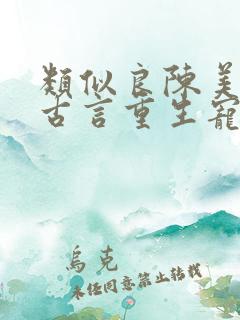 類似良陳美
古言重生寵
烏克
未經同意禁止轉載